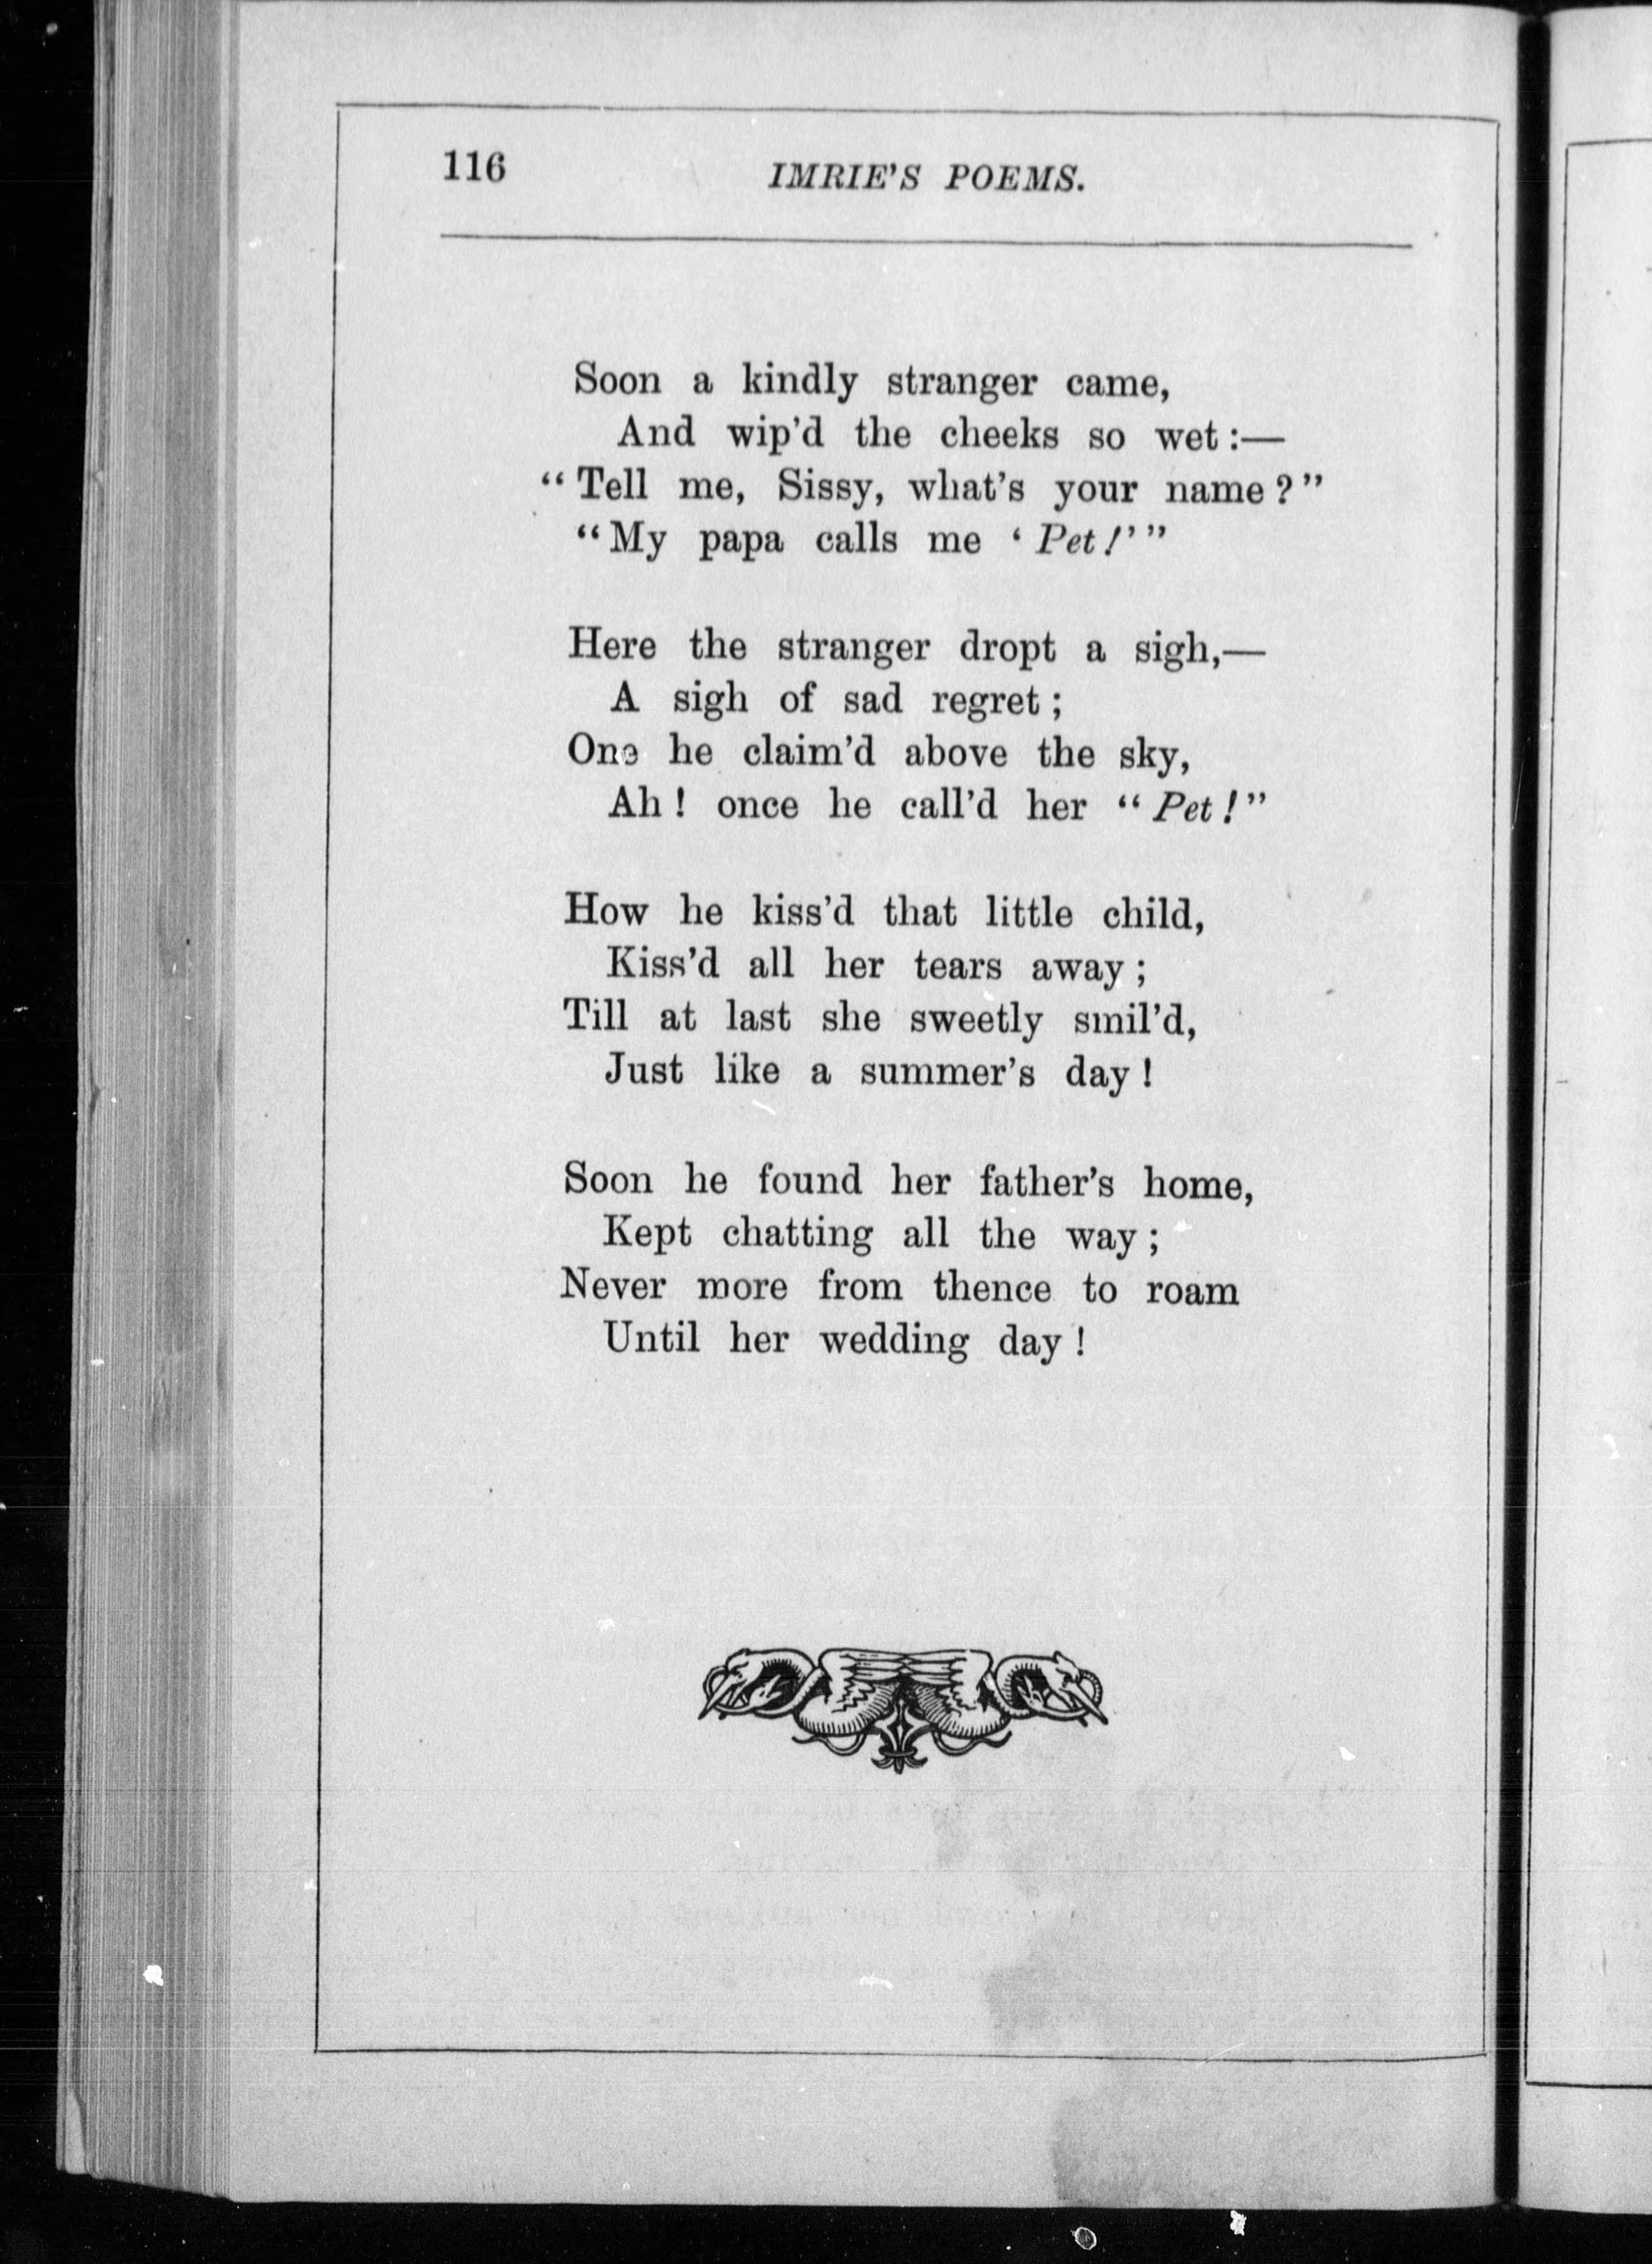 116
IMRIE'S POEMS.
Soon a kindly stranger came,
And wip'd the cheeks so wet :—
“ Tell me, Sissy, what's your name ? ”
“ My papa calls me ‘ Pet !’ ”
Here the stranger dropt a sigh,—
A sigh of sad regret ;
One he claim'd above the sky,
Ah ! once he call'd her “ Pet ! ”
How he kiss'd that little child,
Kiss'd all her tears away ;
Till at last she sweetly smil'd,
Just like a summer's day !
Soon he found her father's home,
Kept chatting all the way ;
Never more from thence to roam
Until her wedding day !